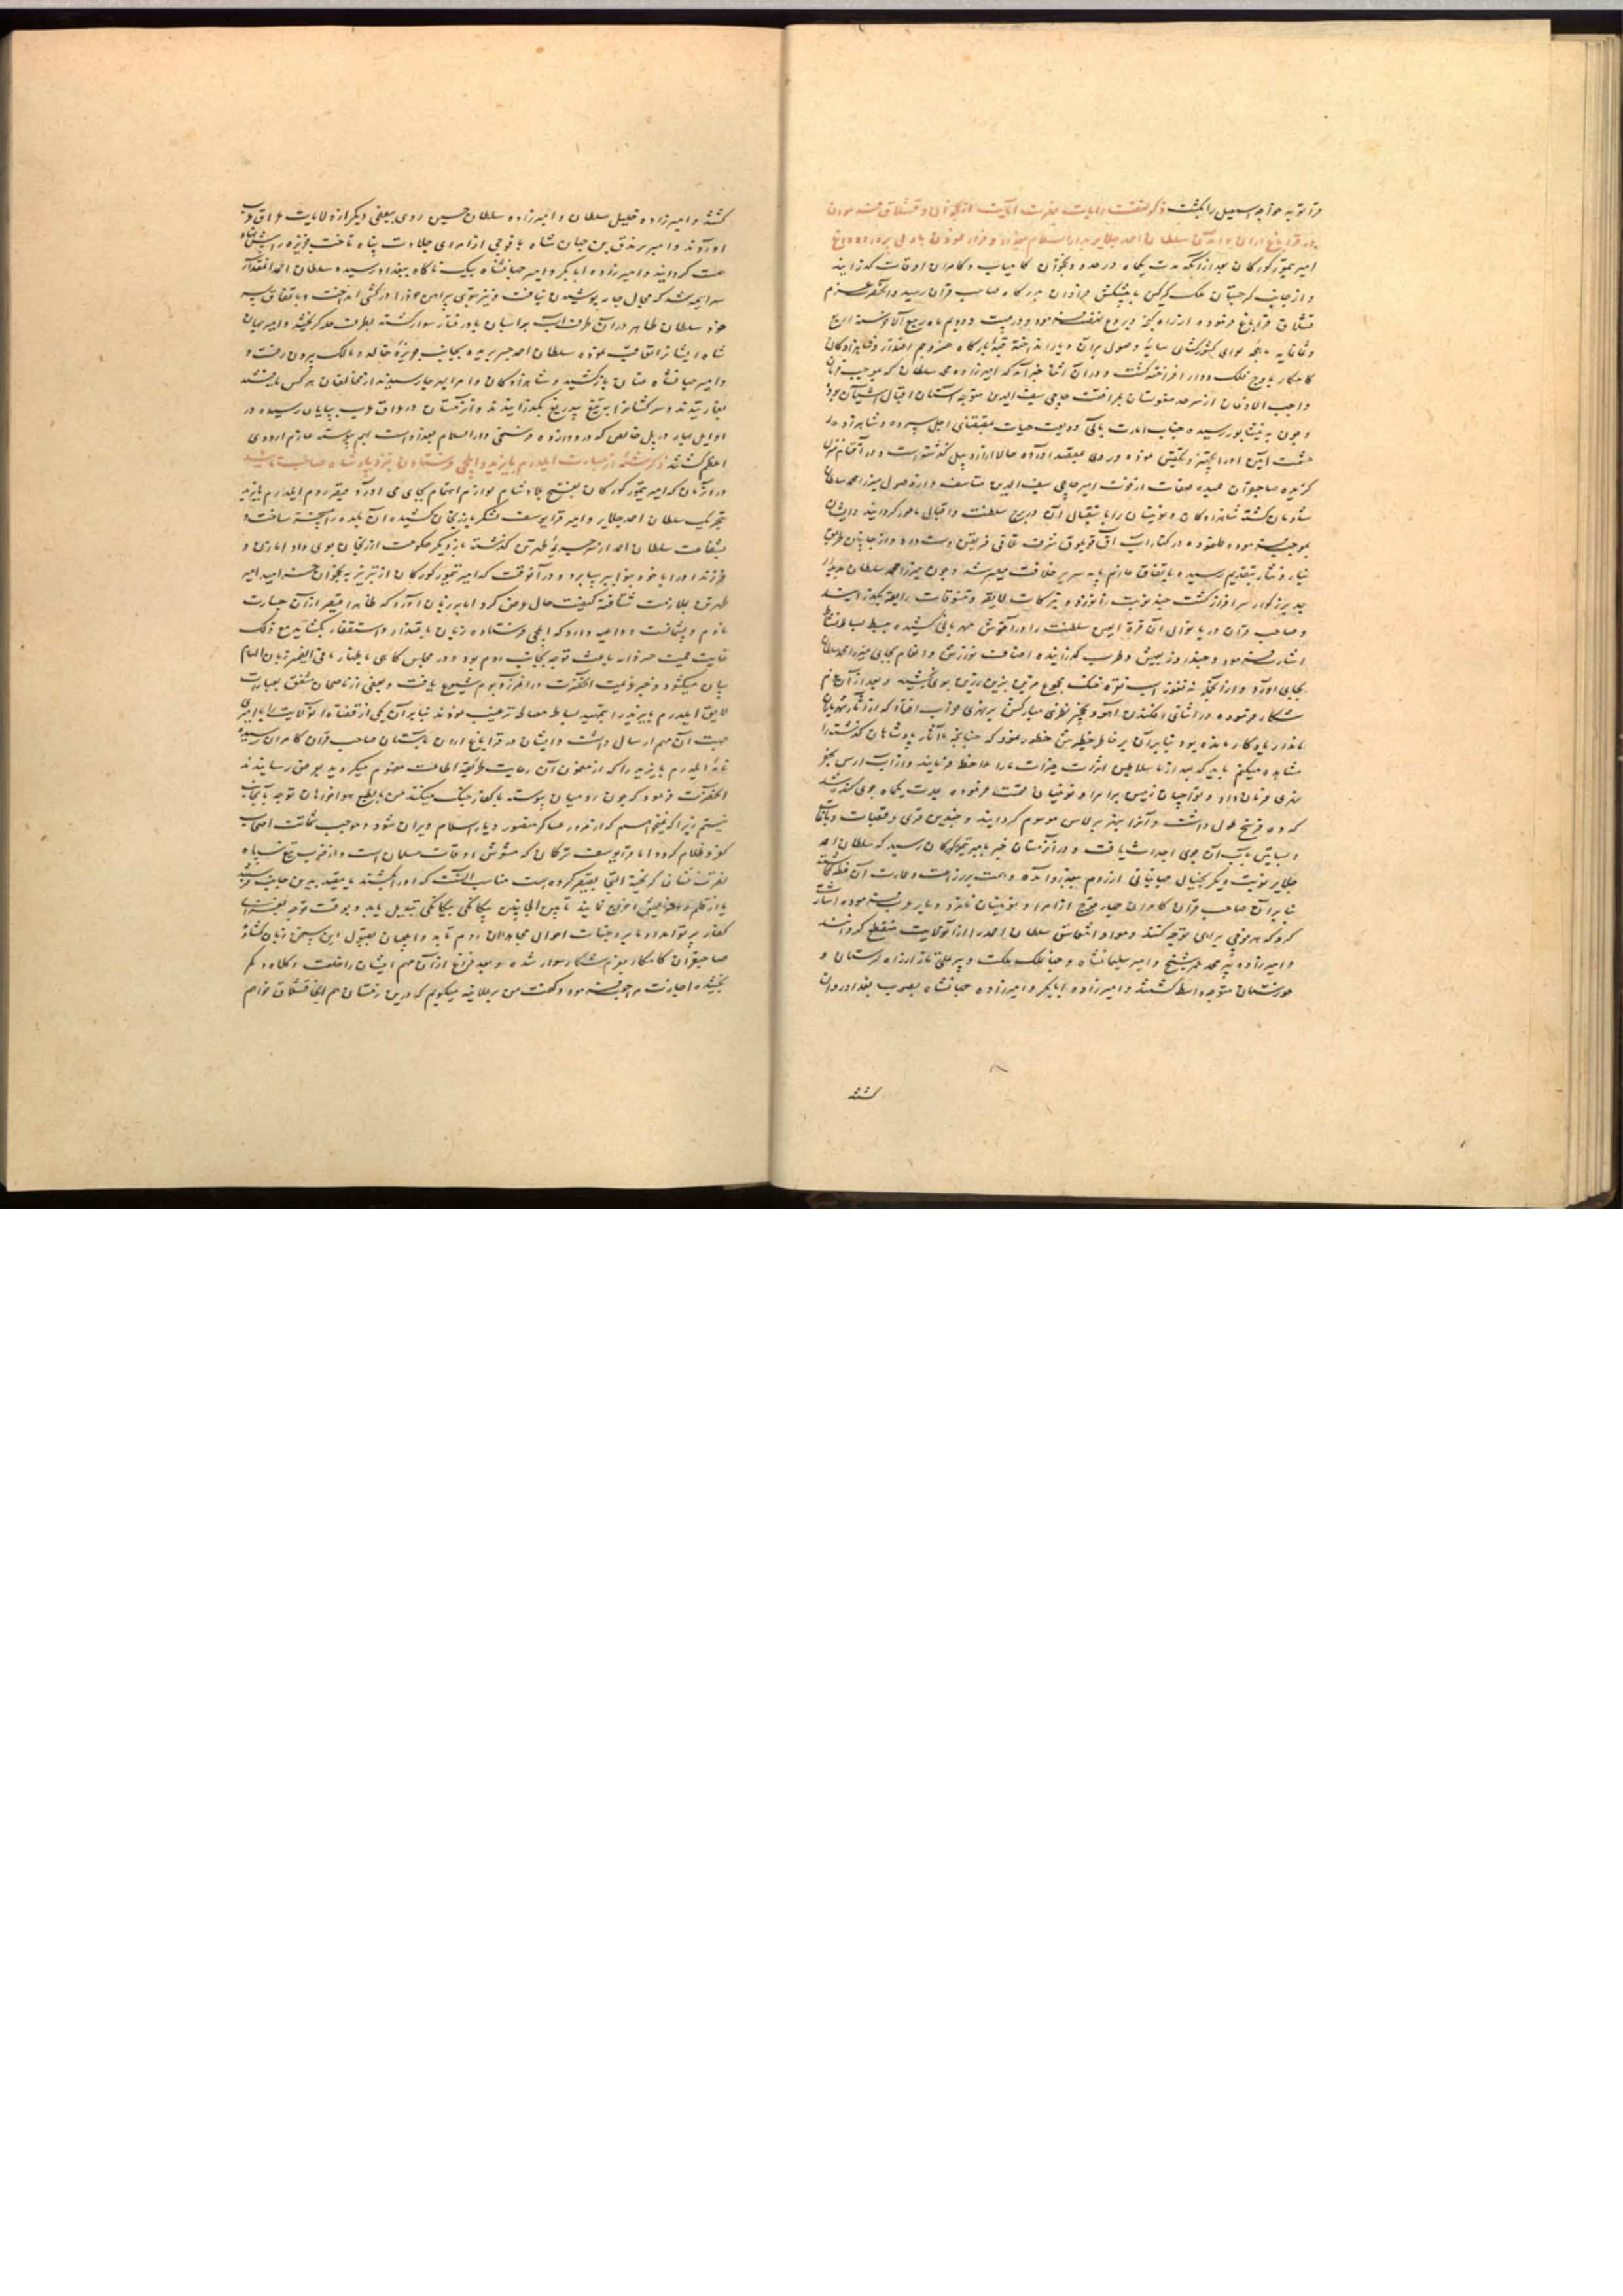 قرا توبه خواجه اسمعیل را بکشت ذکر نهضت رایات نصرت آیات از نخجوان و قشلاق فرمودن
در قراباغ اران و آمدن سلطان احمد جلایر بدار السلام بغداد و فرار نمودن
امیر تیمور کورکان بعد از آنکه مدت یکماه در حدود نخجوان کامیاب و کامران اوقات گذرانید
و از جانب گرجستان ملک کرکین با پیشکش فراوان بدرگاه صاحب قران رسید و آنحضرت عزم
قشلاق قراباغ فرموده از راه کنجه و بردع نهضت فرمود و در بیست و دویم ماه ربیع الآخر سنه اربع
و ثمانمایه ماهچه لوای کشورکشای سایه وصول بران دیار انداخته قبه بارگاه
کامکار باوج فلک دوار افراخته گشت و در آن اثنا خبر آمد که امیرزاده محمد سلطان که بموجب فرمان
واجب الاذعان از سرحد مغولستان بمرافقت حاجی سیف الدین متوجه آستان اقبال آشیان بود
و چون به نیشابور رسیده جناب امارت مآبی ودیعت حیات بمقتضای اجل سپرده و شاهزاده
حشمت آیین او را تجهیز و تکفین نموده و روی بمقصد آورده حالا از اردبیل گذشته است و در آقام نزول
گزیده صاحبقران حمیده صفات از فوت امیر حاجی سیف الدین متاسف و از وصول میرزا محمد سلطان
شادمان گشته شاهزادگان و نوینان را باستقبال آن دری برج سلطنت و اقبال مامور گردانید و ایشان
بموجب فرموده عمل نموده در کنار آب آق قویلوق شرف تلاقی فریقین دست داده و از جانبین طریق
نیاز و نثار بتقدیم رسیده باتفاق عازم پایه سریر خلافت مصیر شد و چون میرزا محمد سلطان بدیدار
جد بزرگوار سرافراز گشت چند نوبت زانو زد و تبرکات لایقه و تنسوقات رایقه بگذرانید
و صاحب قران دریا نوال آن قرة العین سلطنت را در آغوش مهربانی کشیده ببسط بساط نشاط
اشارت فرمود و چند روز بعیش و طرب گذرانیده اصناف نوازش و انعام بجای میرزا محمد سلطان
بجای آورد و از آنجمله نه تقوز اسب نقره خنک مجموع مزین بزین زرین بوی بخشید و بعد از آن عزم
شکار فرموده در اثنای افکندن آهو و نخجیر نظرش مبارکش بر نهری خراب افتاد که از آثار شهریاران
نامدار یادگار مانده بود بنابر آن بر خاطر خطیرش خطور نمود که چنانچه ما آثار پادشاهان گذشته را
مشاهده میکنیم باید که بعد از ما سلاطین اثرات خیرات ما را ملاحظه فرمایند و از آب ارس بحفر
نهری فرمان داد و تواچیان زمین بر امرا و نوینان قسمت فرموده بمدت یکماه جوی کنده شد
که ده فرسخ طول داشت و آنرا بنهر برلاس موسوم گردانید و چندین قری و قصبات و باغات
و بساتین بآب آن جوی احداث یافت و در آن زمستان خبر بامیر تیمور کورکان رسید که سلطان احمد
جلایر نوبت دیگر بخیال جهانبانی از روم ببغداد آمده و همت بر زراعت و عمارت آن خطه گماشته
بنابر آن صاحب قران کامران چهار فوج از امرا و نوینان نامزد دیار عرب فرموده اشارت
کرد که هر فوجی براهی متوجه گشته و مواد انتعاش سلطان احمد را از آنولایت منقطع گردانند
و امیرزاده پیر محمد عمر شیخ و امیر سلیمانشاه و جهان ملک ملکت و پیر علی تاز از راه لرستان و
خوزستان متوجه واسط گشتند و امیرزاده ابابکر و امیرزاده جهانشاه بصوب بغداد روان
گشتند
گشتند و امیرزاده خلیل سلطان و امیرزاده سلطان حسین روی ببعضی دیگر از ولایات عراق عرب
آوردند و امیر برندق بن جهان شاه با فوجی از امرای جلادت پناه تاخت جزیره
همت گردانید و امیرزاده ابابکر و امیر جهانشاه بیک ناگاه ببغداد رسیده سلطان احمد آنقدر
سراسیمه شد که مجال جامه پوشیدن نیافت و نیز بتوی پیراهن خود را در کشتی انداخت و باتفاق پسر
خود سلطان طاهر در آن طرف آب بر اسبان بادرفتار سوار گشته بطرف حله گریختند و امیر جهان
شاه ایشانرا تعاقب نموده سلطان احمد جسر بریده بجانب جزیره خالد و مالک بیرون رفت و
و امیر جهانشاه عنان بازکشید و شاهزادگان و امرا بهر جا رسیدند از مخالفان هرکس یافتند
بغارتیدند و سرکشانرا به تیغ بیدریغ بگذرانیدند و آنزمستان در عراق عرب بپایان رسیده در
اوایل بهار در پل خالص که در دوازده فرسخی دار السلام بغداد است بهم پیوسته عازم اردوی
اعظم گشتند ذکر شمه از جسارت ایلدرم بایزید و ایلچی فرستادن بنزد پادشاه صاحب تایید
در آنزمان که امیر تیمور کورکان بفتح بلاد شام لوازم اهتمام بجای می آورد قیصر روم ایلدرم بایزید
بتحریک سلطان احمد جلایر و امیر قرایوسف لشکر بارزنجان کشیده آن بلده را مسخر ساخت و
بشفاعت سلطان احمد از سر جریمه طهرتن گذشته باز دیگر حکومت ارزنجان بوی داد اما زن و
فرزند او را با خود همراه ببرد و در آنوقت که امیر تیمور کورکان از تبریز به نخجوان خرامید امیر
طهرتن بملازمت شتافته کیفیت حال عرض کرد اما بر زبان آورد که ظاهرا قیصر از آن جسارت
نادم و پشیمانست و داعیه دارد که ایلچی فرستاده زبان باعتذار و استغفار بگشاید مع ذلک
غایت حمیت خسروانه باعث توجه بجانب روم بود و در مجالس گاهی باظهار ما فی الضمیر زبان الهام
بیان میگشود و خبر عزیمت آنحضرت در آن مرز و بوم شیوع یافت و بعضی از ناصحان مشفق بعبارات
لایق ایلدرم بایزید را بتمهید بساط مصالحه ترغیب نمودند بنابر آن یکی از قضاة آنولایت را با امیری
جهت آن مهم ارسال داشت و ایشان در قراباغ اران بآستان صاحب قران کامران رسیده
نامه ایلدرم بایزید را که از مضمون آن رعایت طریقه اطاعت مفهوم میگردید بعرض رسانیدند
آنحضرت فرمود که چون رومیان پیوسته با کفار جنگ میکنند من بالطبع خواهان توجه بآنجانب
نیستم زیرا که نمیخواهم که از مرور عساکر منصور دیار اسلام ویران شود و موجب شماتت اصحاب
کفر و ظلام گردد اما قرایوسف ترکمان که مشوش اوقات مسلمانست و از ضرب تیغ سپاه
نصرت نشان گریخته التجا بقیصر کرده است مناسب آنست که او را کشند یا مقید بدین جانب فرستند
یا از قلمرو خویش اخراج نمایند تا بین الجانبین بیگانگی به یگانگی تبدیل یابد و بوقت توجه بغزای
کفار پرتو امداد ما بر وجنات احوال مجاهدان روم تابد و ایلچیان بقبول این سخن زبان گشاده
صاحبقران کامکار بعزم شکار سوار شده و بعد فراغ از آن مهم ایشان را خلعت و کلاه و کمر
بخشیده اجازت مراجعت فرمود و گفت من برملا نیه میگویم که درین زمستان هم اینجا قشلاق خواهم